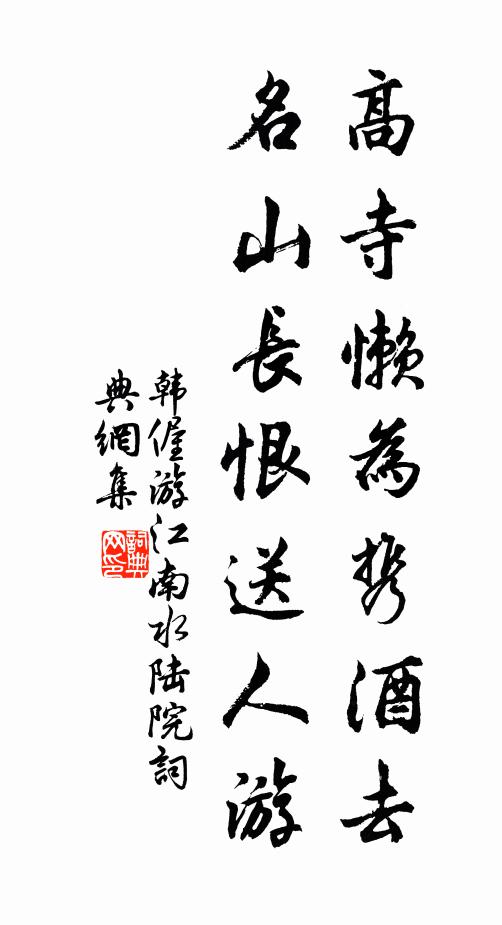 高寺懒為携酒去
名山長恨送人游
韩偓游江南水陆院詞
典網集
詞典网印